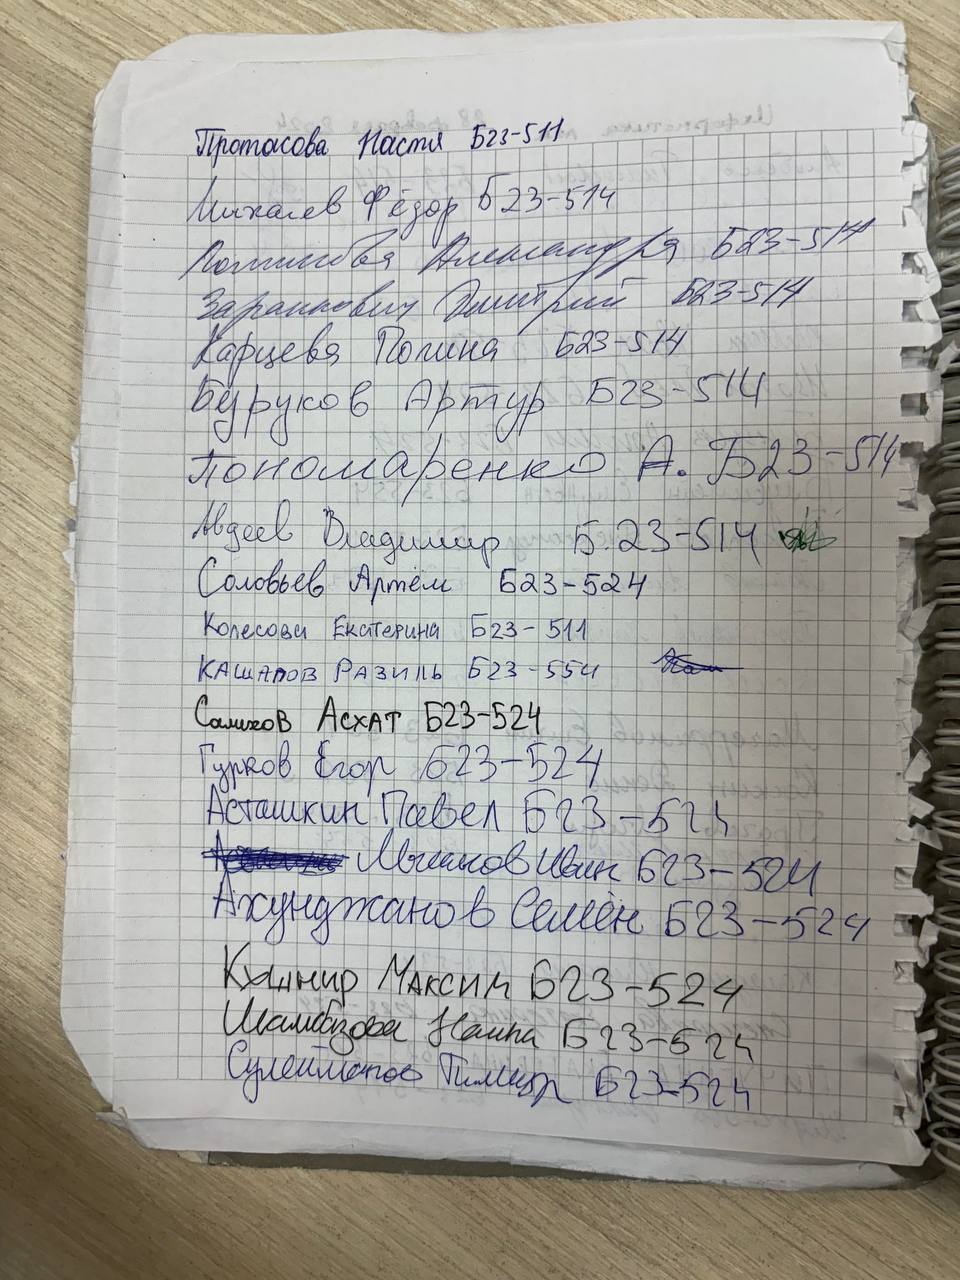 Протасова Настя Б23-511
Михалев Фёдор Б23-514
Александра Б23-514
Заранкович Дмитрий Б23-514
Карцева Полина Б23-514
Буруков Артур Б23-514
Пономаренко А. Б23-514
Авдеев Владимир Б.23-514
Соловьев Артём Б23-524
Колесова Екатерина Б23-511
Кашапов Разиль Б23-554
Салихов Асхат Б23-524
Гурков Егор Б23-524
Асташкин Павел Б23-524
Иван Б23-524
Ахунджанов Семён Б23-524
Кушнир Максим Б23-524
Б23-524
Сулейманов Тимур Б23-524